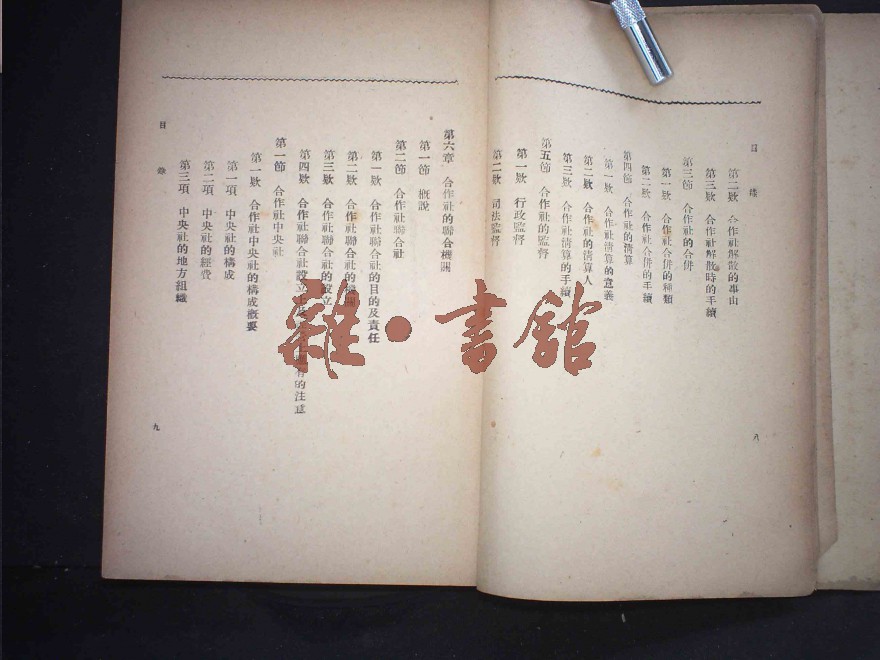 目錄
第二欵 合作社解散的事由
第三欵 合作社解散時的手續
第三節 合作社的合併
第一欵 合作社合併的種類
第二欵 合作社合併的手續
第四節 合作社的淸算
第一欵 合作社淸算的意義
第二欵 合作社的淸算人
第三欵 合作社淸算的手續
第五節 合作社的監督
第一欵 行政監督
第二欵 司法監督
八
第六章 合作社的聯合機關
第一節 槪說
第二節 合作社聯合社
第一欵 合作社聯合社的目的及責任
第二欵 合作社聯合社的機關
第三欵 合作社聯合社的設立
第四欵 合作社聯合社設立上及 有的注意
第一節 合作社中央社
第一欵 合作社中央社的構成槪要
第一項 中央社的構成
第二項 中央社的經費
第三項 中央社的地方組織
目錄
九
雜·書館